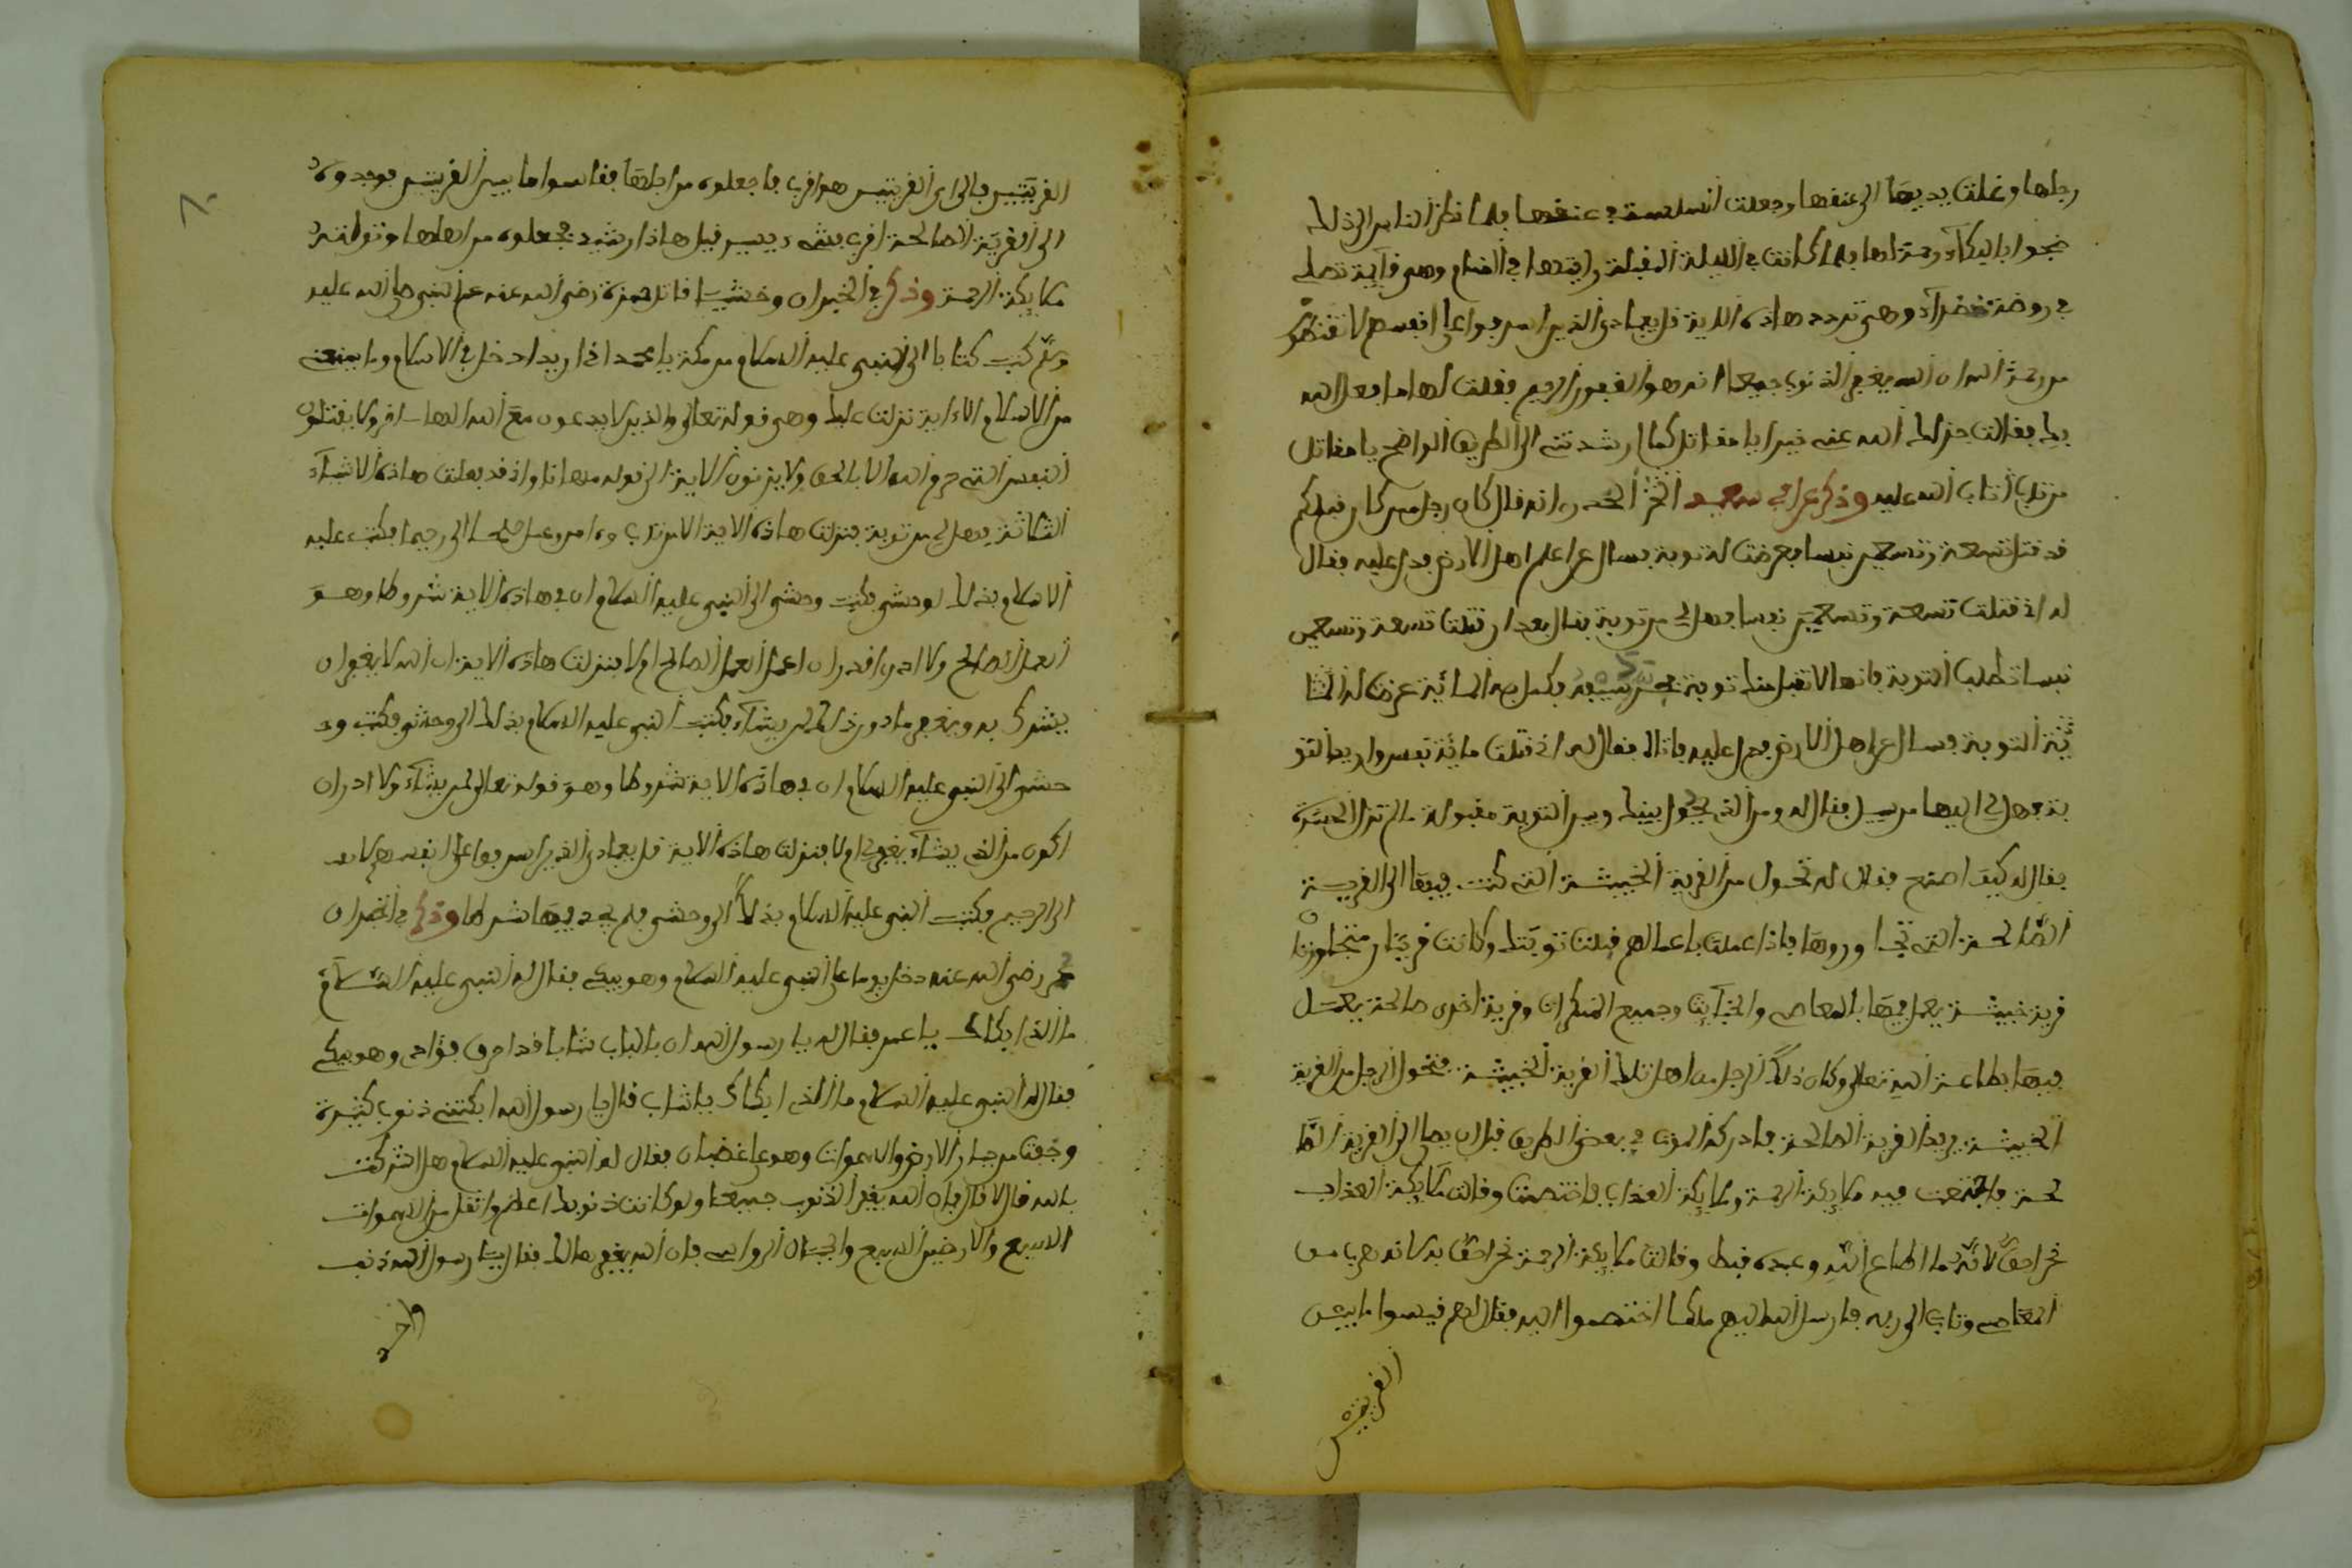 رجلها وغلت يديها الى عنقها وجعلت السلسة في عنقها فلما نظر الناس الى ذلك
ضجوا بالبكاء رحمة لها فلما كانت في الليلة المقبلة رايتها في المنام وهي قايمة تصلي
في روضة خضراء وهي تردد هاذه الاية قل يعبادي الذين اسرفوا على انفسهم لا تقنطوا
من رحمة الله ان الله يغفر الذنوب جميعا انه هو الغفور الرحيم فقلت لها ما فعل الله
بك فقالت جزاك الله عني خيرا يا مقاتل كما ارشدتني الى الطريق الواضح يا مقاتل
من تاب تاب الله عليه وذكر عن ابي سعيد الخدري انه قال كان رجل ممن كان قبلكم
قد قتل تسعة وتسعين نفسا فعرضت له توبة فسال عن اعلم اهل الارض فدل عليه فقال
له اني قتلت تسعة وتسعين نفسا فهل لي من توبة فقال بعد ان قتلت تسعة وتسعين
نفسا تطلب التوبة فانها لا تقبل منك توبة فكمل به المائة عرضت له الثا
نية التوبة فسال عن اهل الارض فدل عليه فاتاه فقال له اني قتلت مائة نفس واريد التو
بة فهل لي اليها من سبيل فقال له ومن الذي يحول بينك وبين التوبة مقبولة
فقال له كيف اصنع فقال له تحول من القرية الخبيثة التي كنت فيها الى القرية
الصالحة التي تجاورها فاذا عملت باعمالهم قبلت توبتك وكانت قريتان متجاورتان
قرية خبيثة يعمل فيها بالمعاصي والخبايث وجميع المنكرات وقرية اخرى صالحة يعمل
فيها بطاعة الله تعالى وكان ذلك الرجل من اهل تلك القرية الخبيثة فتحول الرجل من القرية
الخبيثة يريد القرية الصالحة فادركه الموت في بعض الطريق قبل ان يصل الى القرية الصا
لحة فاجتمعت فيه ملايكة الرحمة وملايكة العذاب فاختصمت وقالت ملايكة العذاب
نحن احق لانه ما اطاع الله وعبده قط وقالت ملايكة الرحمة نحن احق به لانه هرب من
المعاصي وتاب الى ربه فارسل الله اليهم ملكا اختصموا اليه فقال لهم قيسوا ما بين
القريتين
القريتين فالى اي القريتين هو اقرب فاجعلوه من اهلها فقاسوا ما بين القريتين فوجدوه
الى القرية الصالحة اقرب بشيء يسير فجعلوه من اهلها وتولته
ملايكة الرحمة وذكر في الخبر ان وحشيا قاتل حمزة رضي الله عنه عم النبي صلى الله عليه
وسلم كتب كتابا الى النبي عليه السلام من مكة يا محمد اني اريد ادخل في الاسلام وما يمنعني
من الاسلام الا اية نزلت عليك وهي قوله تعالى والذين لا يدعون مع الله الها اخر ولا يقتلون
النفس التي حرم الله الا بالحق ولا يزنون الاية الى قوله مهانا واني قد فعلت هاذه الاشياء
الثلاثة فهل لي من توبة فنزلت هاذه الاية الا من تاب وءامن وعمل صلحا الى رحيما فكتب عليه
السلام بذلك لوحشي فكتب وحشي الى النبي عليه السلام ان في هاذه الاية شروطا وهو
العمل الصالح ولا ادري اقدر ان اعمل العمل الصالح ام لا فنزلت هاذه الاية ان الله لا يغفر ان
يشرك به ويغفر ما دون ذلك لمن يشاء فكتب النبي عليه السلام بذلك الى وحشي فكتب و
حشي الى النبي عليه السلام ان في هاذه الاية شروطا وهو قوله تعالى لمن يشاء ولا ادر ان
اكون من الذي يشاء يغفر لي ام لا فنزلت هاذه الاية قل يعبادي الذين اسرفوا على انفسهم
الى الرحيم فكتب النبي عليه السلام بذلك الى وحشي فلم يجد فيها شرطا وذكر في الخبر ان
عمر رضي الله عنه دخل يوما على النبي عليه السلام وهو يبكي فقال له النبي عليه السلام
ما الذي ابكاك يا عمر فقال له يا رسول الله ان بالباب شابا قد احرق فؤادي وهو يبكي
فقال له النبي عليه السلام ما الذي ابكاك يا شاب قال يا رسول الله ابكتني ذنوب كثيرة
وخفت من جبار الارض والسموات وهو علي غضبان فقال له النبي عليه السلام هل اشركت
بالله قال لا قال فان الله يغفر الذنوب جميعا ولو كانت ذنوبك اعظم واثقل من السموات
السبع والارضين السبع والجبال الرواسي فان الله يغفرها لك فقال يا رسول الله ذنب